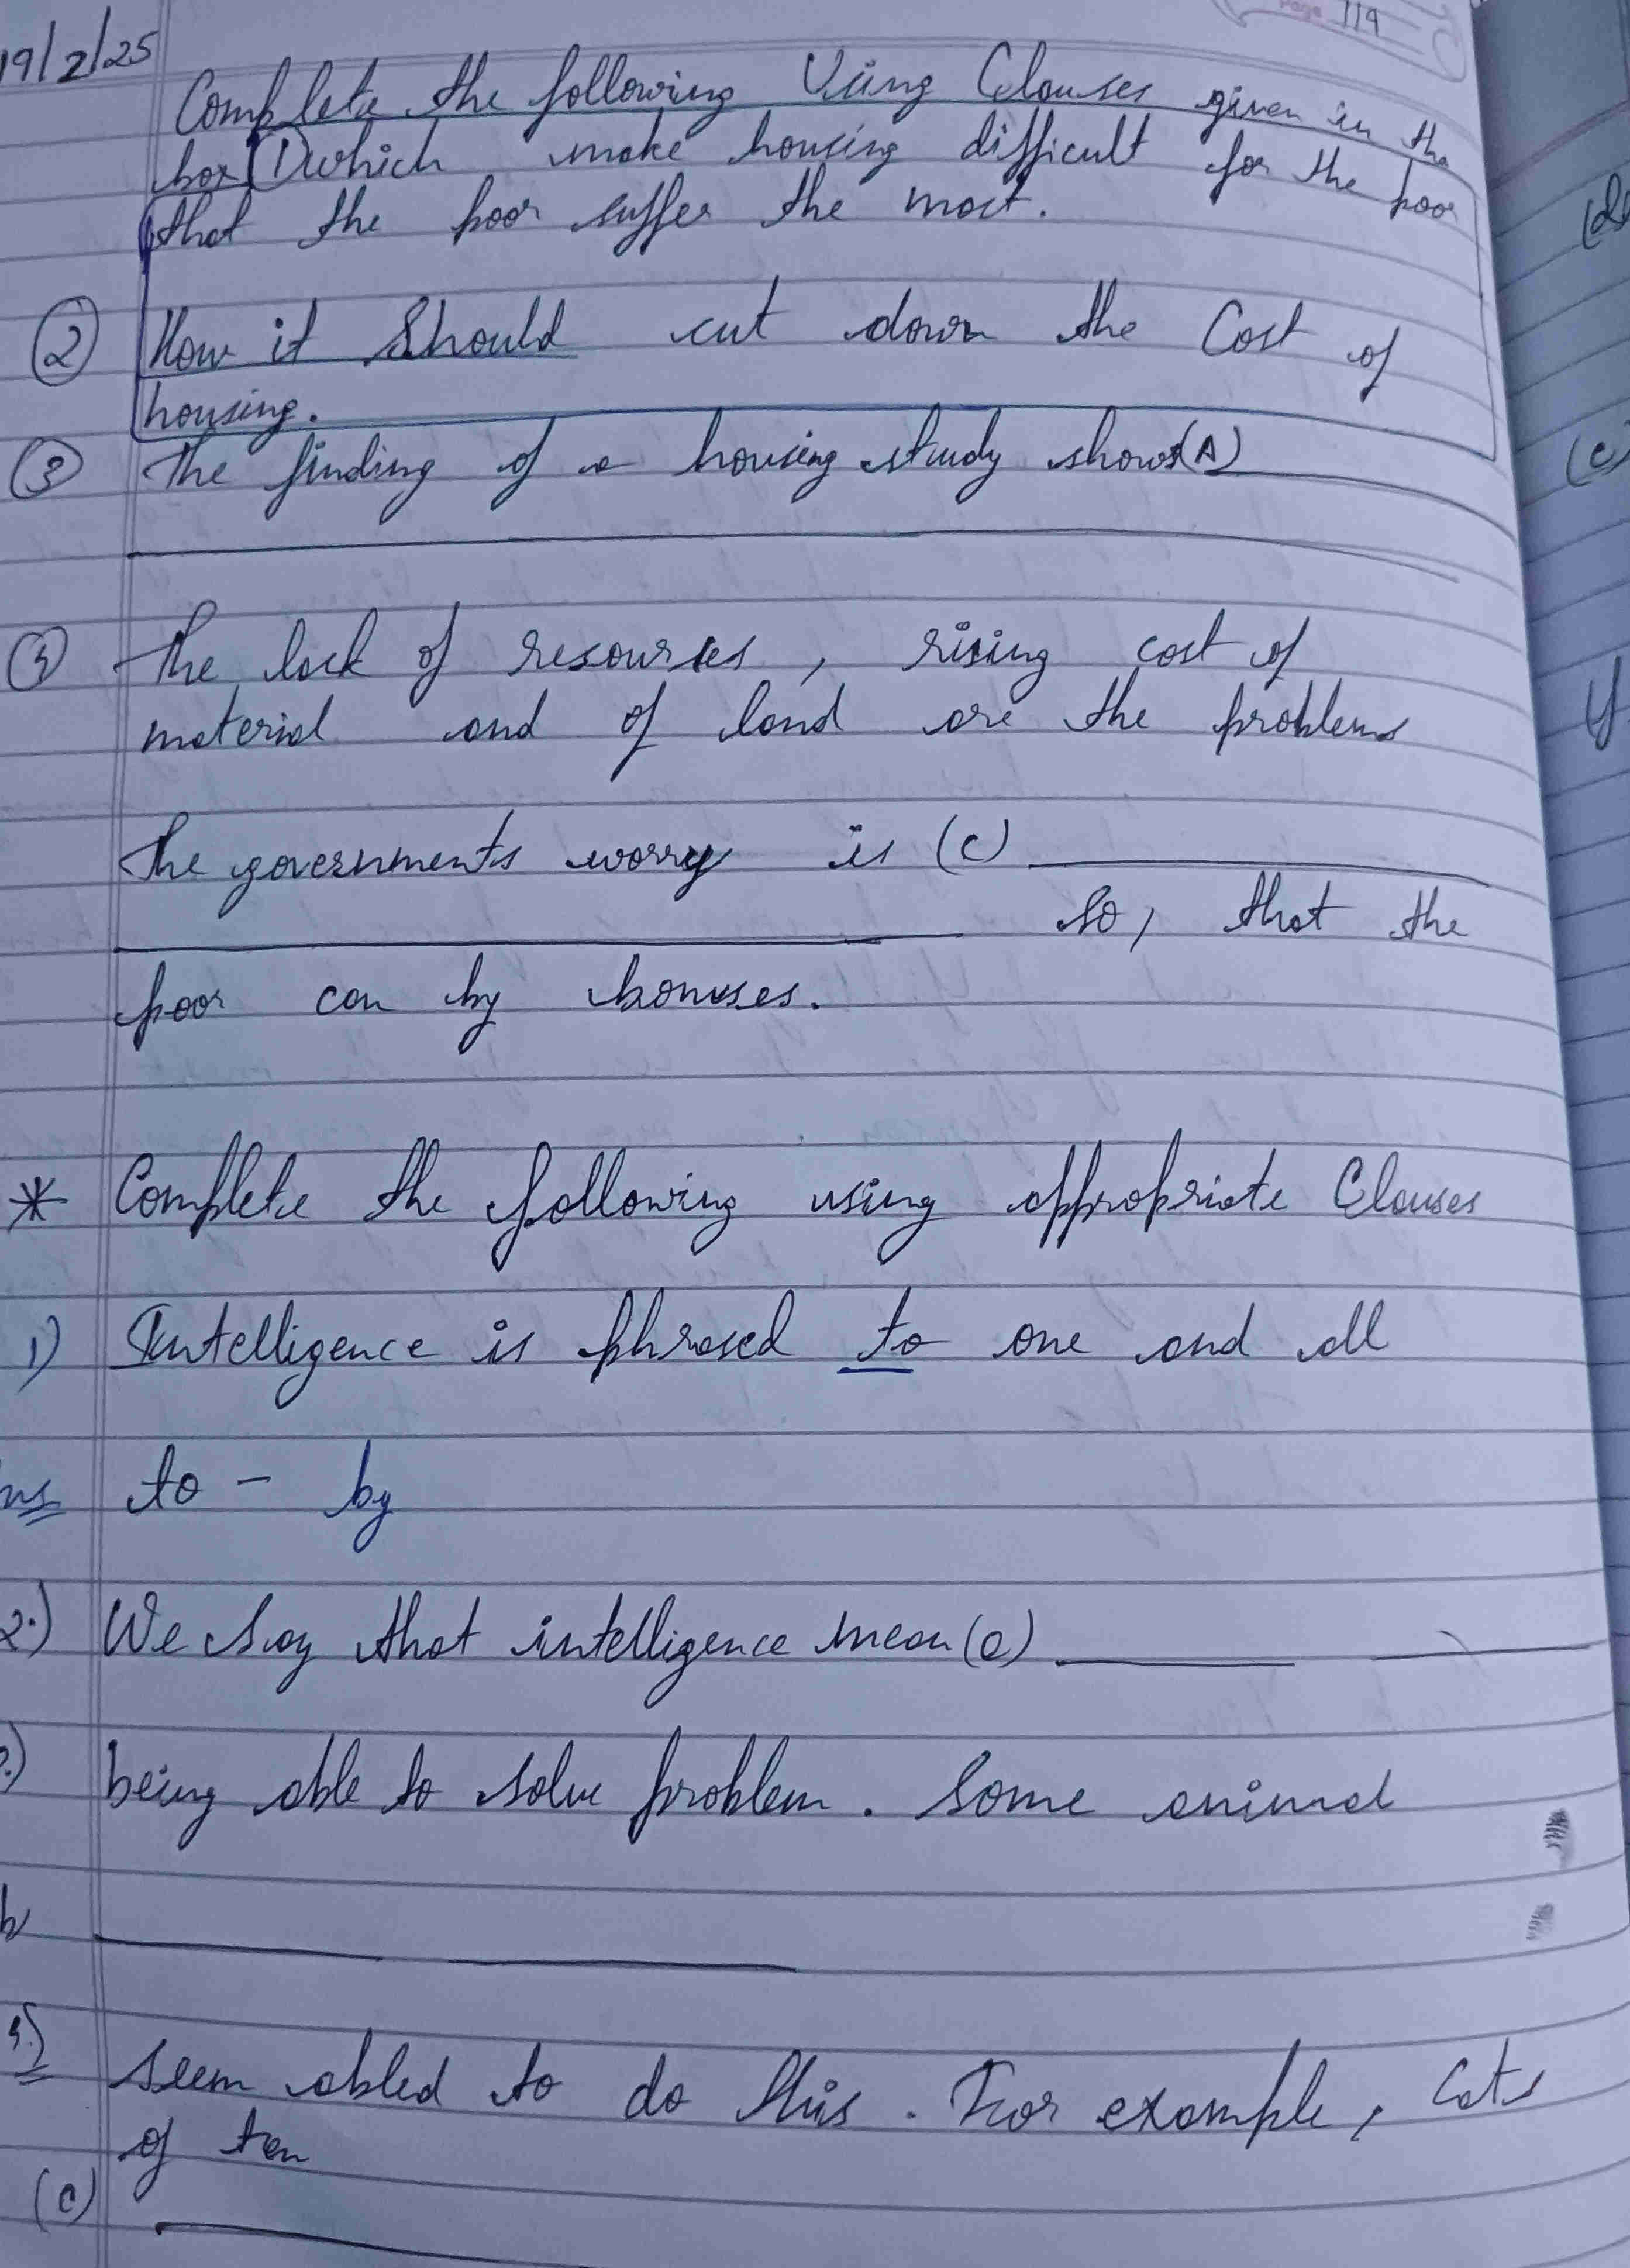 Page 119
19/2/25
Complete the following Using Clauses given in the
box 1) which make housing difficult for the poor
that the poor suffer the most.
2 How it should cut down the cost of
housing.
3 The finding of a housing study shows (A)
4 The lack of resourses, rising cost of
material and of land are the problems
The governments worry is (c)
so, that the
poor can by bonuses.
* Complete the following using appropriate Clauses
1) Intelligence is phrased to one and all
Ans to - by
2.) We say that intelligence mean (a)
being able to solve problem. Some animal
b
4.) seem abled to do this. For example, Cats
of ten
(c)
(c)